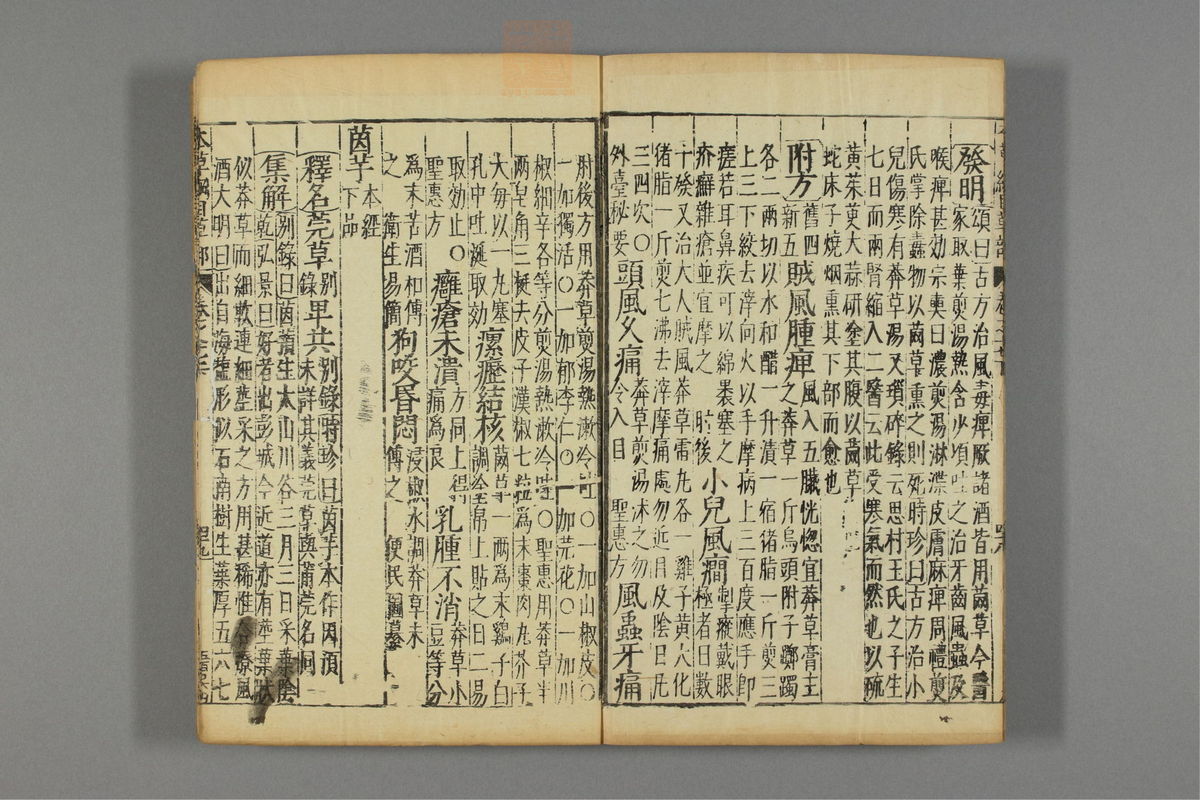 發明頌曰古方治風毒痺厥諸酒皆用䓞草今醫
家取葉煎湯熱含少頃吐之治牙齒風蟲及
喉痺甚効宗奭曰濃煎湯淋渫皮膚麻痺周禮翦
氏掌除蠹物以䓞草熏之則死時珍曰古方治小
兒傷寒有莽草湯又瑣碎錄云思村王氏之子生
七日而兩腎縮入二醫云此受寒氣而然也以硫
黃茱萸大蒜研塗其腹以䓞草
蛇床子燒烟熏其下部而愈也
附方舊四新五賊風腫痺風入五臟恍惚宜莽草膏主
之莽草一斤烏頭附子躑躅
各二兩切以水和醋一升漬一宿猪脂一斤煎三
上三下絞去滓向火以手摩病上三百度應手即
瘥若耳鼻疾可以綿褁塞之
疥癬雜瘡並宜摩之 肘後小兒風癎掣瘲戴眼
極者日數
十發又治大人賊風莽草雷丸各一雞子黃大化
猪脂一斤煎七沸去滓摩痛處勿近目及陰日凡
三四次○
外臺秘要頭風久痛莽草煎湯沐之勿
令入目 聖惠方風蟲牙痛
肘後方用莽草煎湯熱漱冷吐○一加山椒皮○
一加獨活○一加郁李仁○一加芫花○一加川
椒細辛各等分煎湯熱漱冷吐○聖惠用莽草半
兩皂角三挺去皮子漢椒七粒爲末棗肉丸芥子
大每以一丸塞
孔中吐涎取効瘰癧結核䓞草一兩爲末雞子白
調塗帛上貼之日二易
取効止○
聖惠方癰瘡未潰方同上得
痛爲良乳腫不消莽草小
豆等分
爲末苦酒和傅
之 衛生易簡狗咬昏悶浸椒水調莽草末
傅之 便民圖纂
茵芋本經
下品
釋名莞草別錄卑共別錄時珍曰茵芋本作因預
未詳其義莞草與蒲莞名同
集解別錄曰茵蕷生太山川谷三月三日采葉陰
乾弘景曰好者出彭城今近道亦有莖葉狀
似莽草而細軟連細莖采之方用甚稀惟合療風
酒大明曰出自海鹽形似石南樹生葉厚五六七